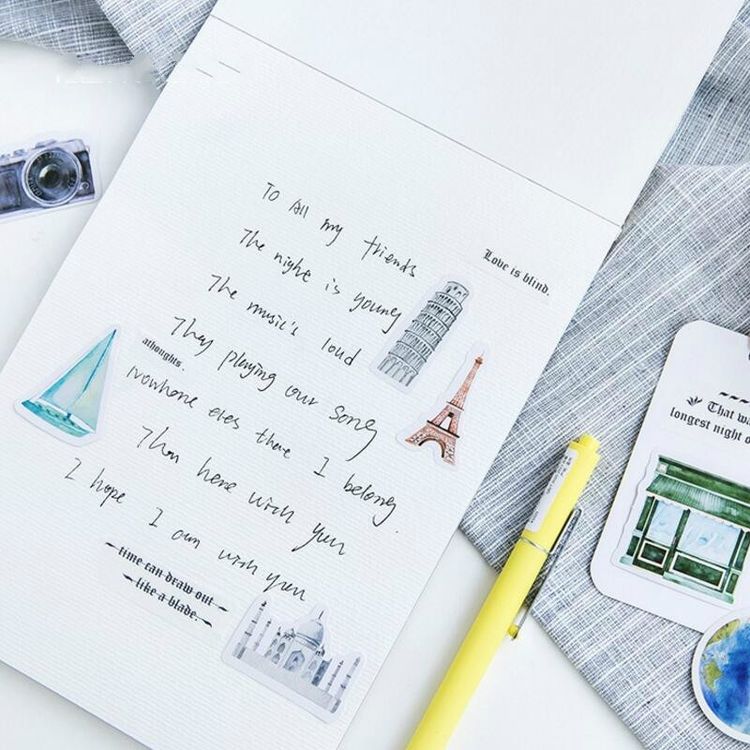 To All my friends
Love is blind.
The night is young
The music's loud
athoughts.
They playing our song
Nowhone eles there I belong.
Than here with you
I hope I am with you
time can draw out
like a blade.
That wa
longest night o